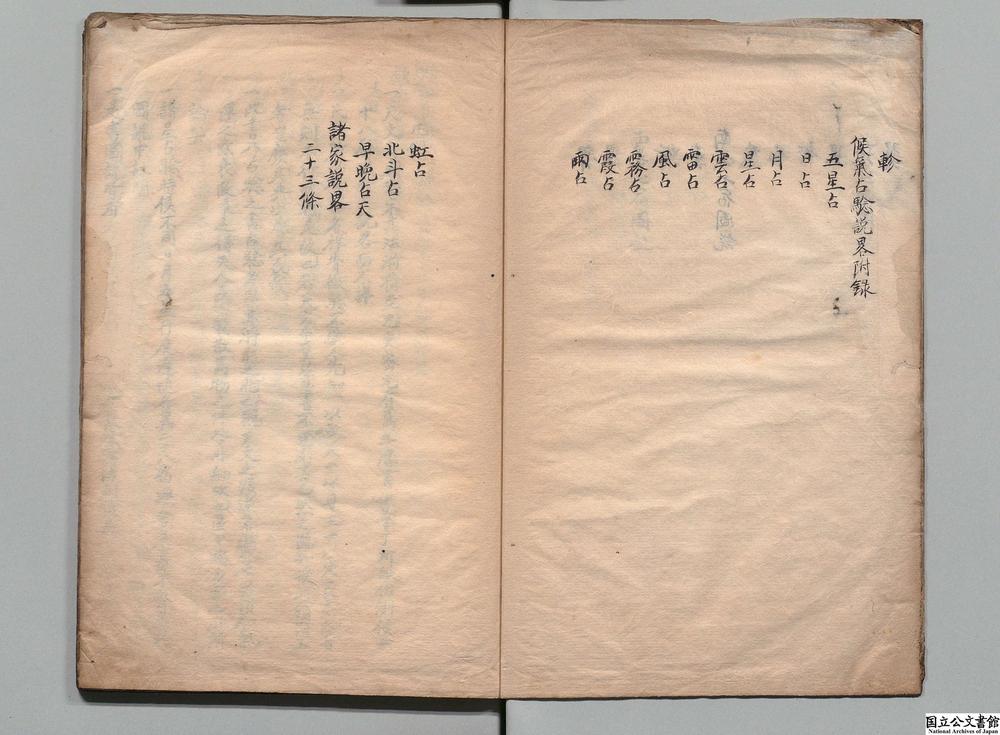 軫
候氣占驗説畧附録
五星占
日占
月占
星占
雲占
雷占
風占
霧占
霞占
雨占
虹占
北斗占
早晩占天
諸家説畧
二十三條
国立公文書館
National Archives of Japan